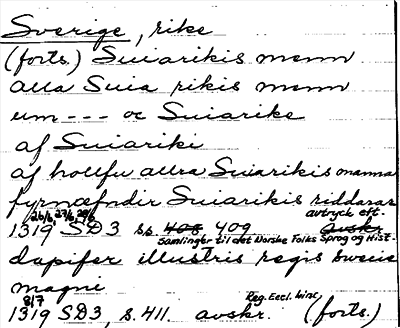 Sverige, rike
(forts.) Suiarikis menn
alla Suia rikis menn
um --- oc Suiarike
af Suiariki
af hollfu allra Suiarikis manna
fyrnæfndir Suiarikis riddarar
26/6, 27/6, 29/6 avtryck eft.
1319 SD3 s. 408 409 avskr
Samlinger til det Norske Folks Sprog og Hist.
dapifer illustris regis swecie
magni
8/7 Reg. Eccl. linc
1319 SD3, s. 411. avskr. (forts.)